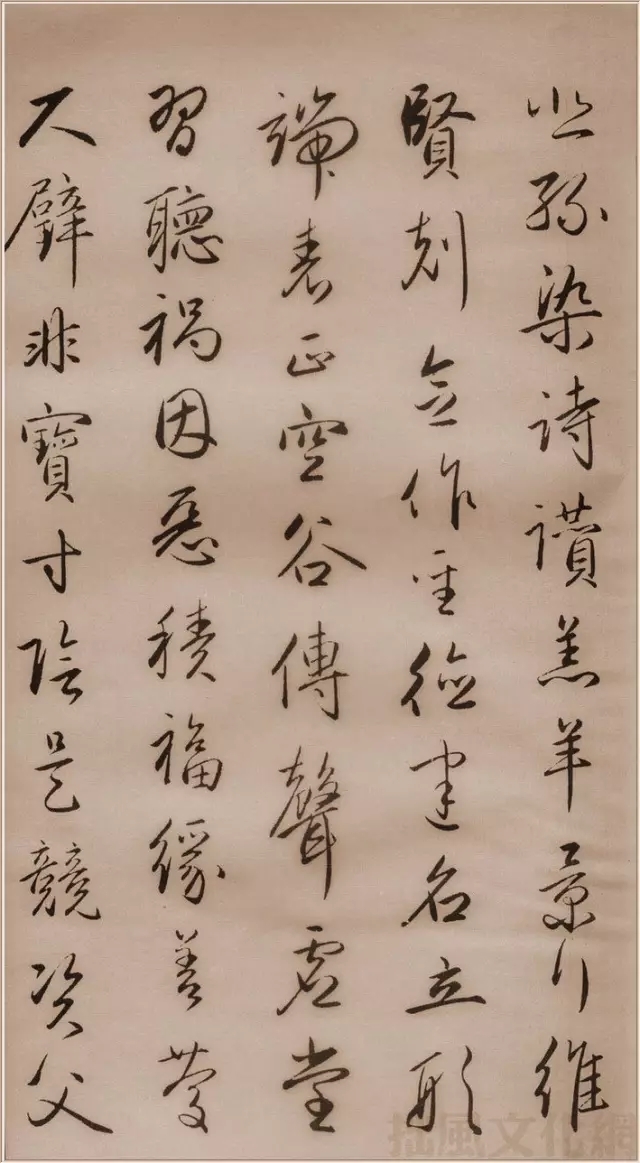 悲絲染詩讚羔羊景行維
賢剋念作聖德建名立形
端表正空谷傳聲虛堂
習聽禍因惡積福緣善慶
尺璧非寶寸陰是競資父
拙風文化網